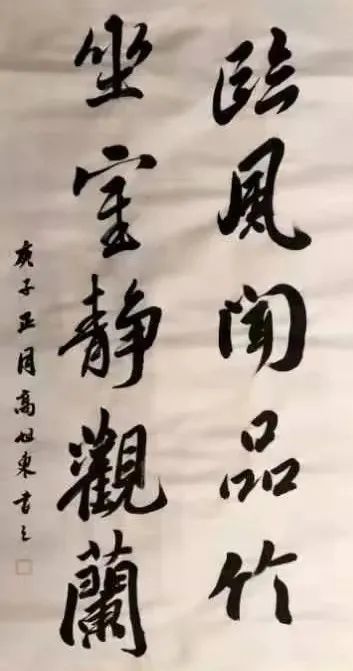 臨風聞品竹
坐室静觀蘭
庚子正月高東書之